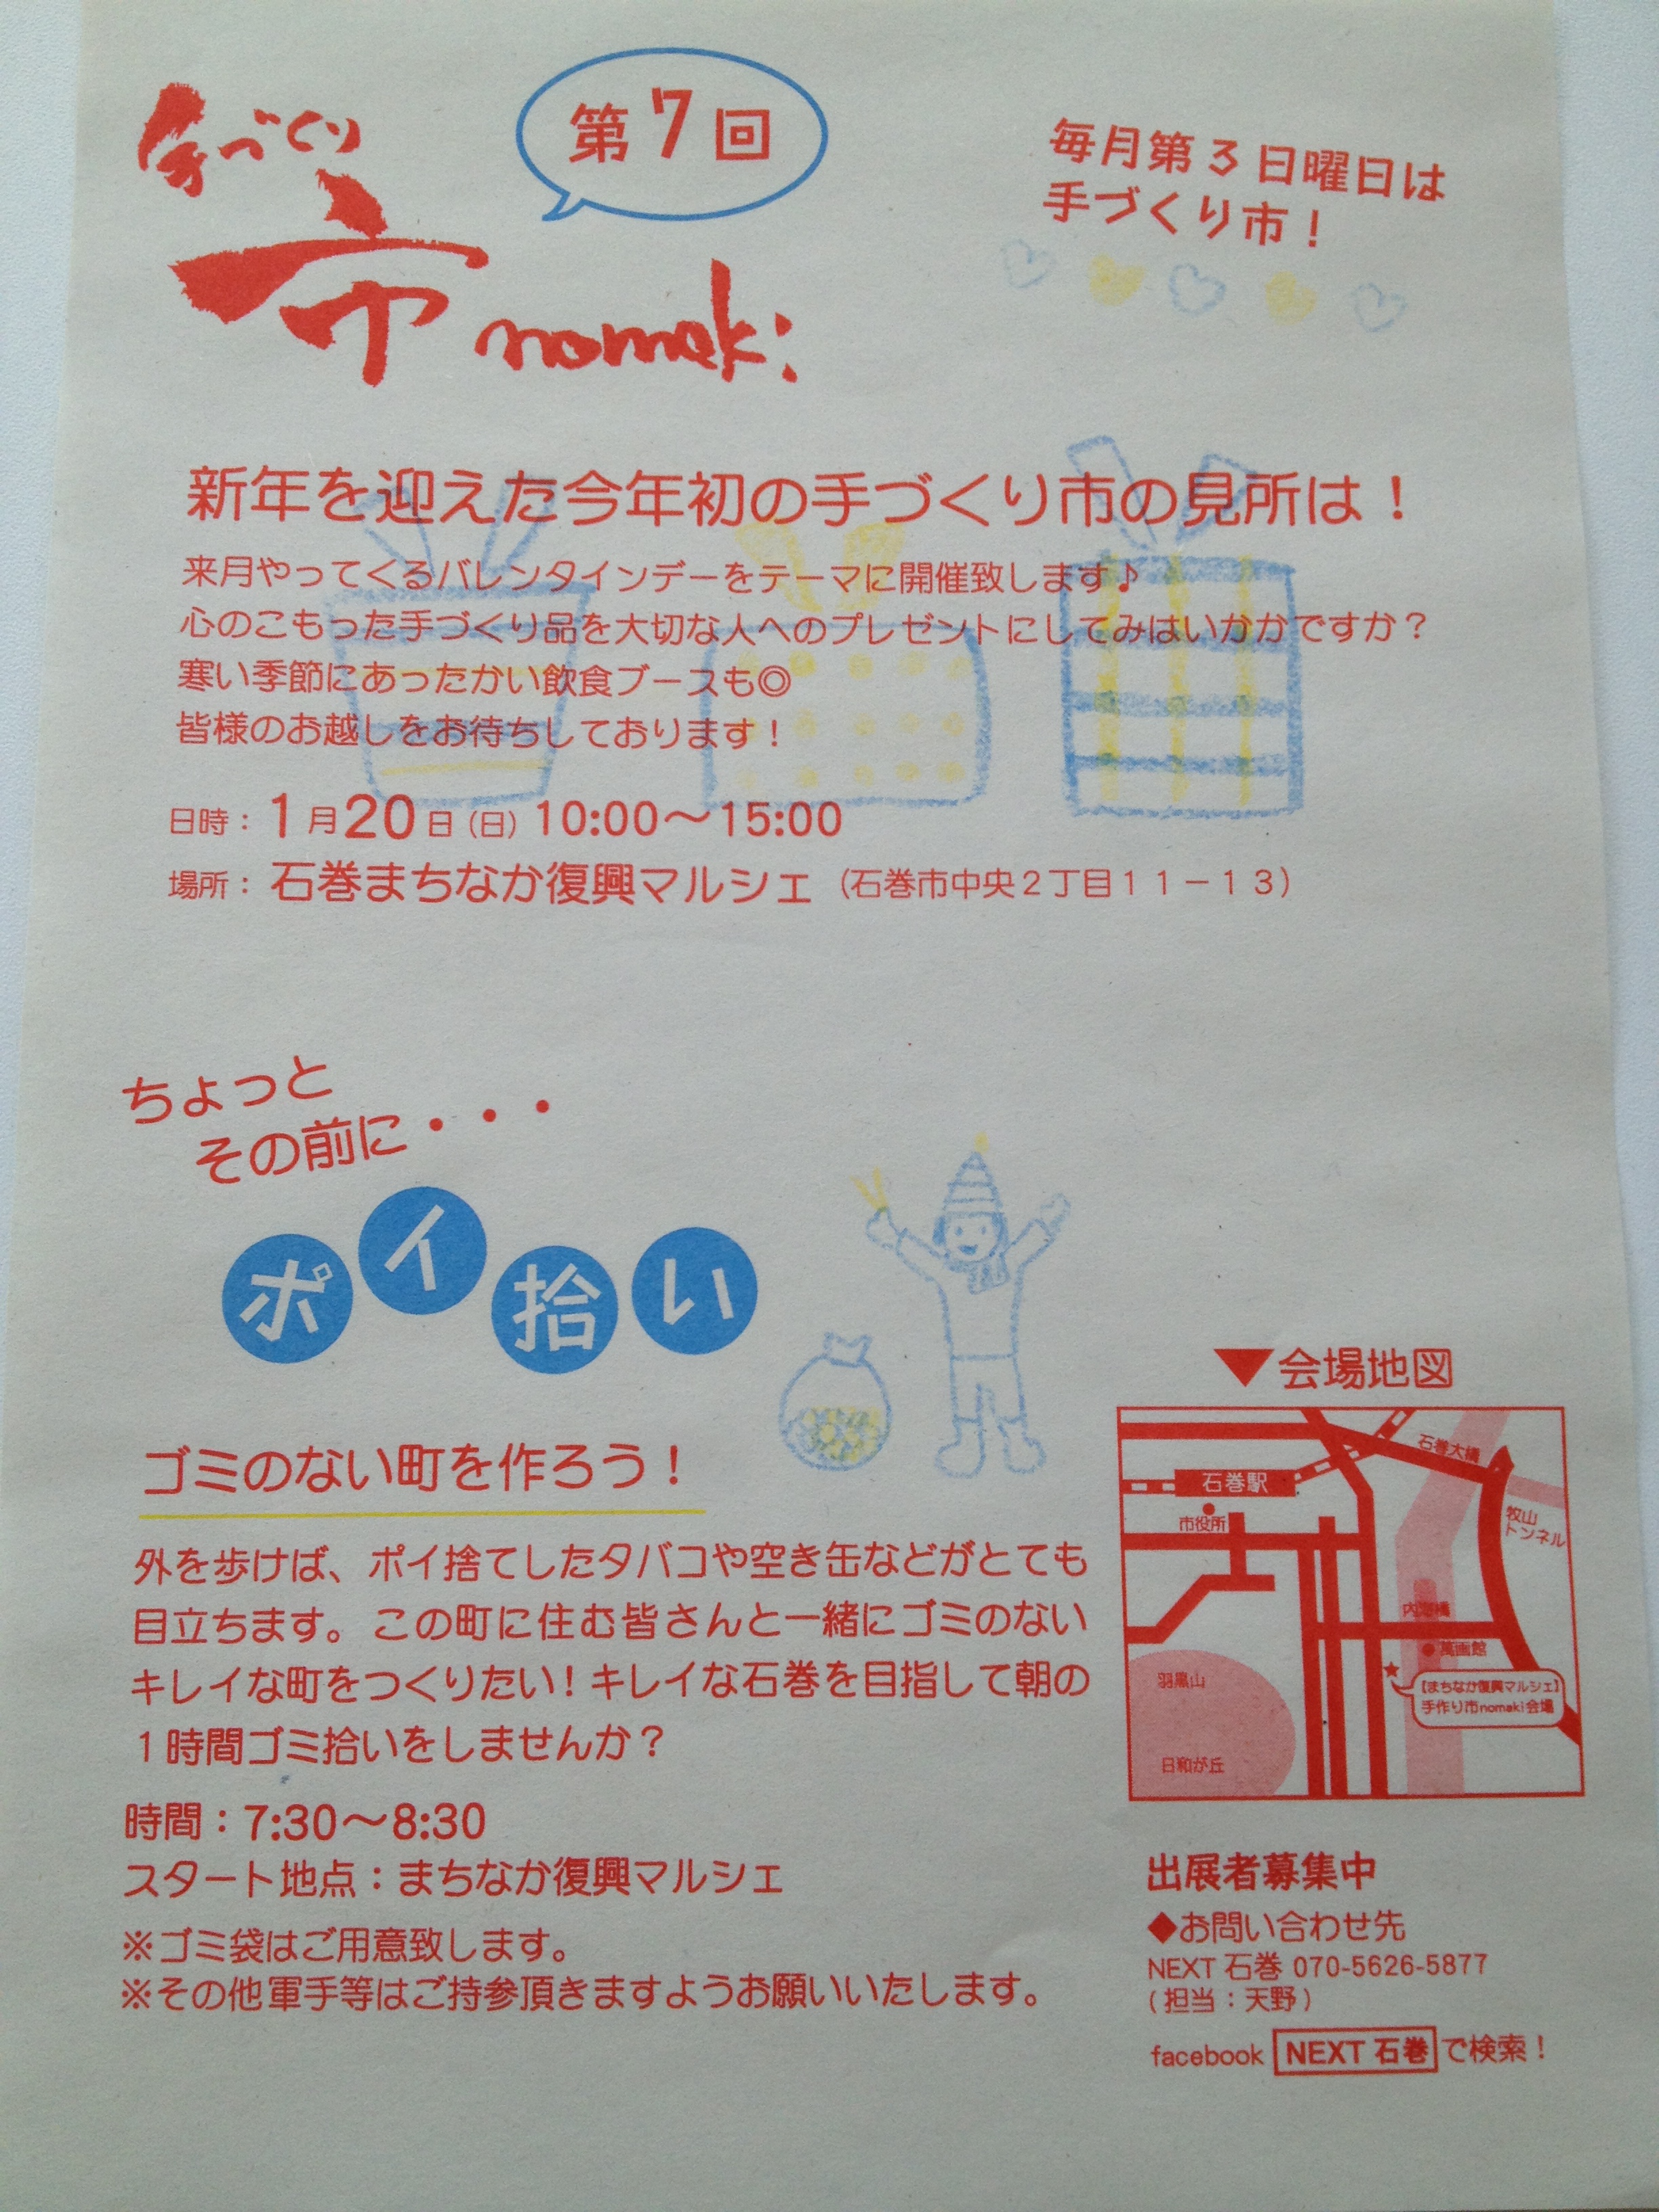 手づくり
市nomaki
第7回
毎月第3日曜日は
手づくり市！
新年を迎えた今年初の手づくり市の見所は！
来月やってくるバレンタインデーをテーマに開催致します♪
心のこもった手づくり品を大切な人へのプレゼントにしてみはいかかですか？
寒い季節にあったかい飲食ブースも◎
皆様のお越しをお待ちしております！
日時：1月20日（日）10:00～15:00
場所：石巻まちなか復興マルシェ（石巻市中央２丁目１１－１３）
ちょっと
その前に・・・
ポイ拾い
ゴミのない町を作ろう！
外を歩けば、ポイ捨てしたタバコや空き缶などがとても
目立ちます。この町に住む皆さんと一緒にゴミのない
キレイな町をつくりたい！キレイな石巻を目指して朝の
１時間ゴミ拾いをしませんか？
時間：7:30～8:30
スタート地点：まちなか復興マルシェ
※ゴミ袋はご用意致します。
※その他軍手等はご持参頂きますようお願いいたします。
▼会場地図
石巻大橋
石巻駅
市役所
牧山
トンネル
内海橋
萬画館
羽黒山
【まちなか復興マルシェ】
手作り市nomaki会場
日和が丘
出展者募集中
◆お問い合わせ先
NEXT 石巻 070-5626-5877
（担当：天野）
facebook NEXT 石巻 で検索！